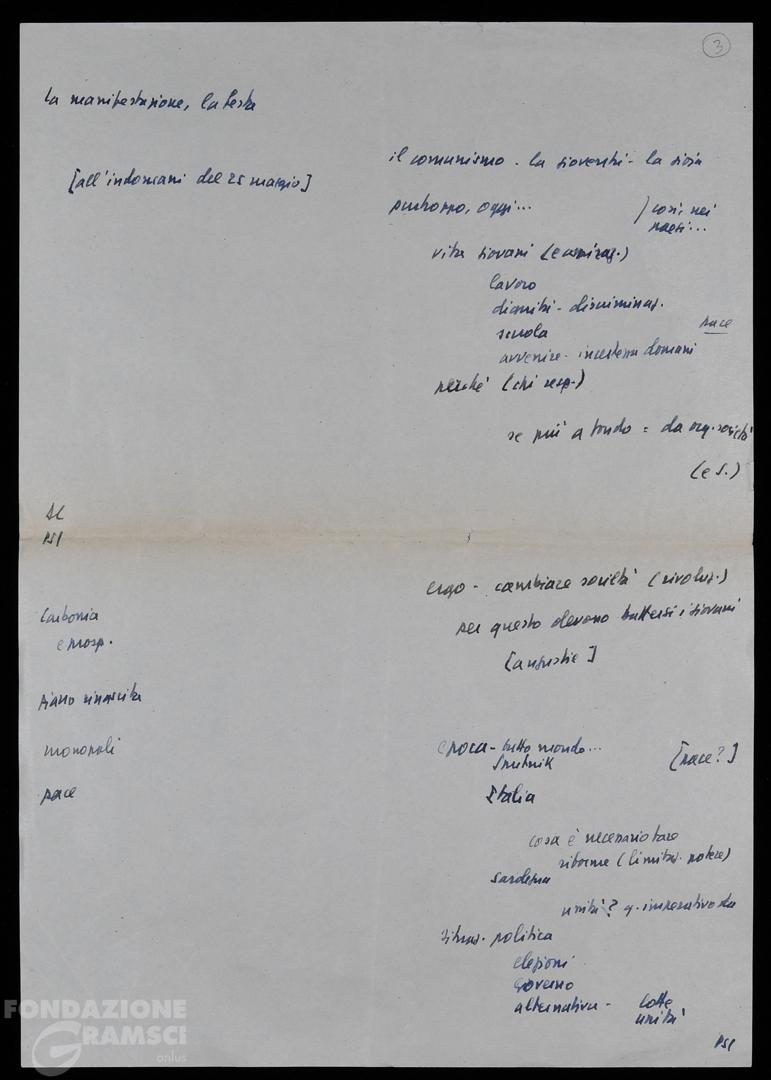 3
la manifestazione, la festa
[all'indomani del 25 maggio]
il comunismo - la gioventù - la gioia
purtroppo, oggi...
) così, nei
paesi...
vita giovani (e emigraz.)
lavoro
dignità - discriminaz.
scuola
pace
avvenire - incertezza domani
perché (chi resp.)
se più a fondo = da org. società
(e S.)
DC
PSI
ergo - cambiare società (rivoluz.)
per questo devono battersi i giovani
[angustie]
Carbonia
e prosp.
piano rinascita
monopoli
pace
epoca - tutto mondo...
Sputnik
[pace?]
Italia
cosa è necessario fare
riforme (limitaz. potere)
Sardegna
unità? q. imperativo da
situaz. politica
elezioni
governo
alternativa - lotte
unità
PSI
FONDAZIONE
GRAMSCI
onlus